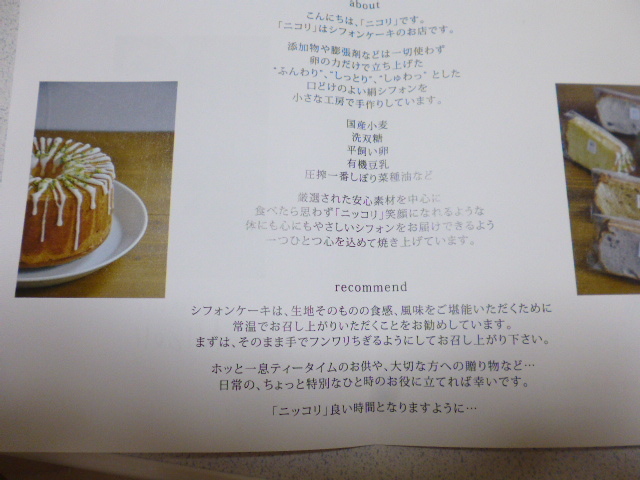 about
こんにちは、「ニコリ」です。
「ニコリ」はシフォンケーキのお店です。
添加物や膨張剤などは一切使わず
卵の力だけで立ち上げた
"ふんわり"、"しっとり"、"しゅわっ" とした
口どけのよい絹シフォンを
小さな工房で手作りしています。
国産小麦
洗双糖
平飼い卵
有機豆乳
圧搾一番しぼり菜種油など
厳選された安心素材を中心に
食べたら思わず「ニッコリ」笑顔になれるような
体にも心にもやさしいシフォンをお届けできるよう
一つひとつ心を込めて焼き上げています。
recommend
シフォンケーキは、生地そのものの食感、風味をご堪能いただくために
常温でお召し上がりいただくことをお勧めしています。
まずは、そのまま手でフンワリちぎるようにしてお召し上がり下さい。
ホッと一息ティータイムのお供や、大切な方への贈り物など…
日常の、ちょっと特別なひと時のお役に立てれば幸いです。
「ニッコリ」良い時間となりますように…